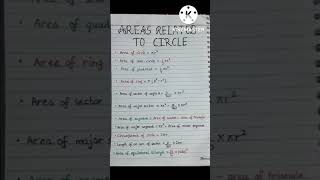 AREAS RELATED
TO CIRCLE
Area of circle = πr²
Area of semi-circle = ½πr²
Area of quadrant = ¼πr²
Area of ring = π(R²-r²)
Area of sector of angle θ = × πr²
Area of major sector = × πr²
Area of segment = Area of sector - Area of triangle
Area of major segment = πr² - Area of minor segment
Circumference of circle = 2πr
Length of an arc of sector = × 2πr
Area of equilateral triangle =
Area of
Area of quad
Area of ring
Area of sector
Area of major s
× πr²